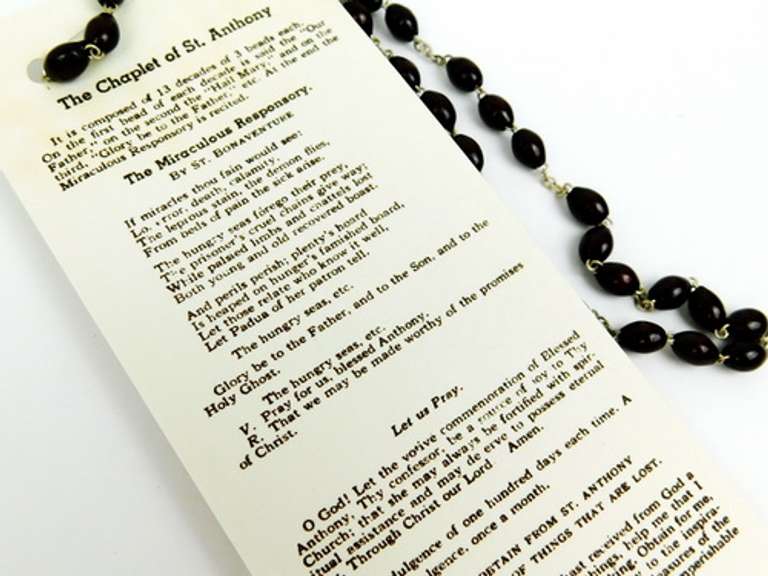 The Chaplet of St. Anthony
It is composed of 13 decades of 3 beads each.
On the first bead of each decade is said the "Our
Father," on the second the "Hail Mary," and on the
third, "Glory be to the Father," etc. At the end the
Miraculous Responsory is recited.
The Miraculous Responsory.
BY ST. BONAVENTURE
If miracles thou fain would see:
Lo, error, death, calamity,
The leprous stain, the demon flies,
From beds of pain the sick arise.
The hungry seas forego their prey,
The prisoner's cruel chains give way;
While palsied limbs and chattels lost
Both young and old recovered boast.
And perils perish; plenty's hoard
Is heaped on hunger's famished board,
Let those relate who know it well,
Let Padua of her patron tell.
The hungry seas, etc.
Glory be to the Father, and to the Son, and to the
Holy Ghost.
The hungry seas, etc.
V. Pray for us, blessed Anthony.
R. That we may be made worthy of the promises
of Christ.
Let us Pray.
O God! Let the votive commemoration of Blessed
Anthony, Thy confessor, be a source of joy to Thy
Church; that she may always be fortified with spir-
itual assistance and may deserve to possess eternal
Through Christ our Lord Amen.
dulgence of one hundred days each time. A
lgence, once a month.
OBTAIN FROM ST. ANTHONY
OF THINGS THAT ARE LOST.
hast received from God a
things, help me that I
king. Obtain for me,
to the inspira-
easures of the
mperishable